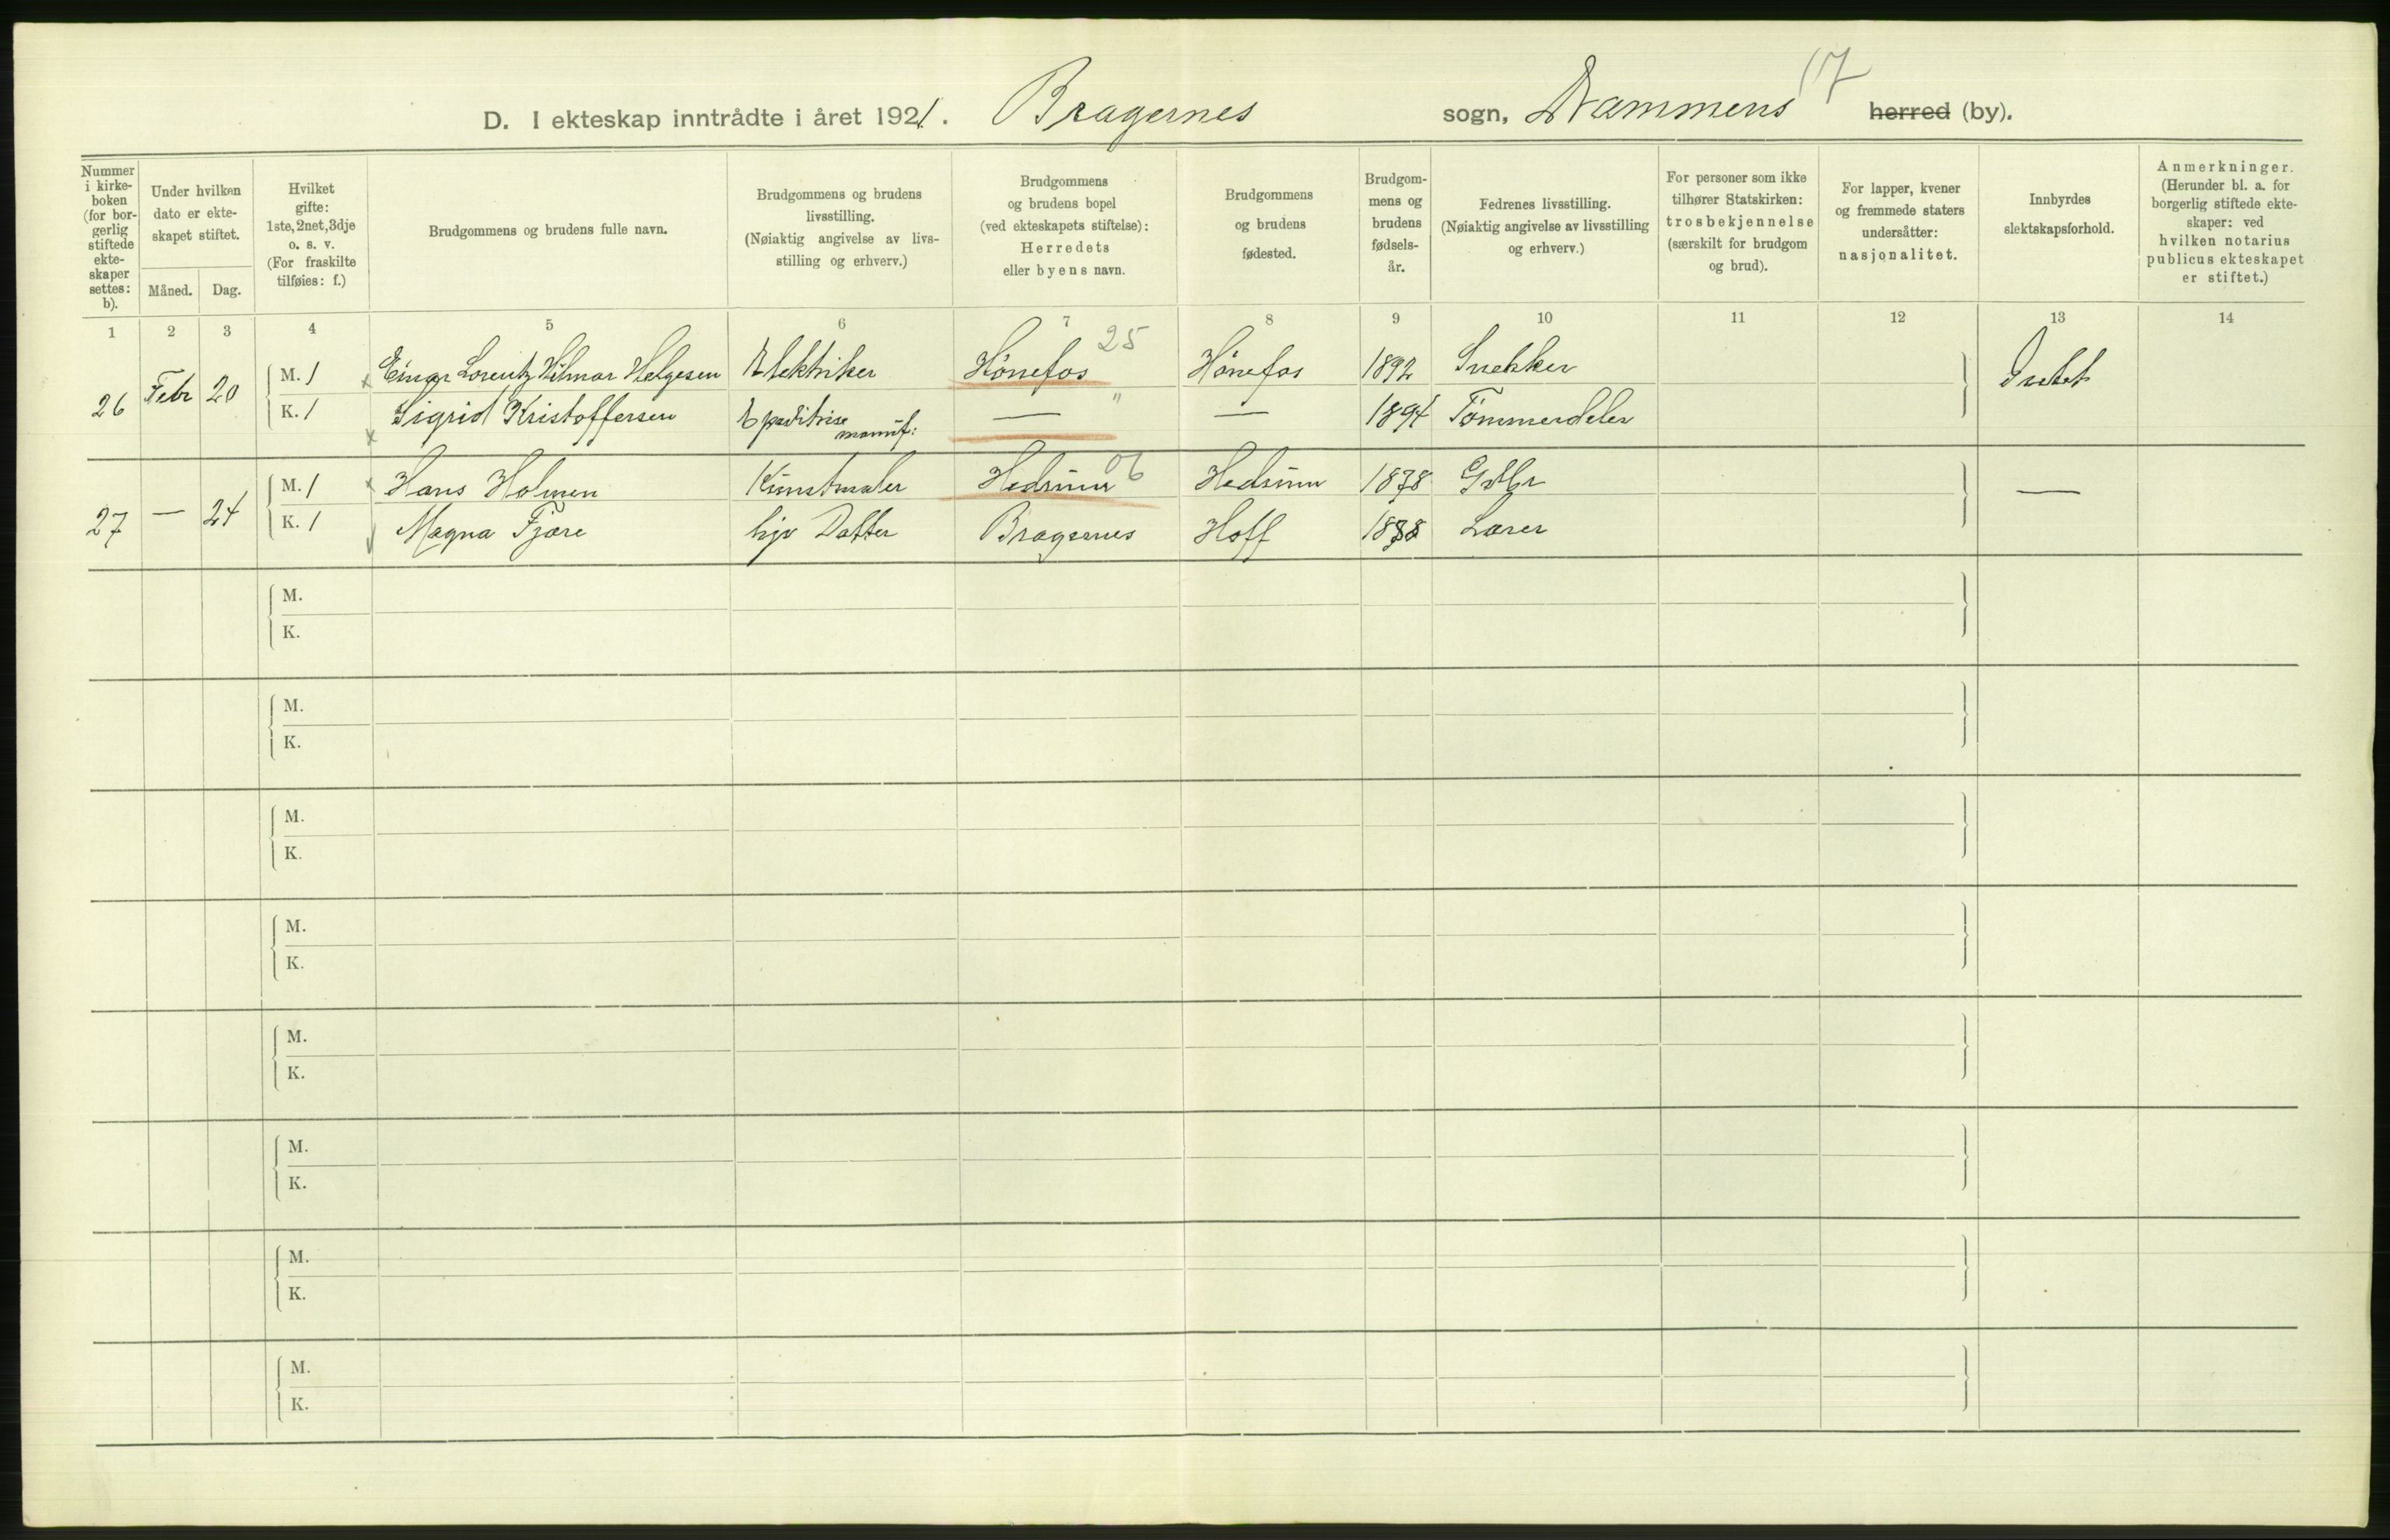 17
D. I ekteskap inntrådte i året 1921. Bragernes sogn, Drammens herred (by).
Nummer i kirke-boken (for bor-gerlig stiftede ekte-skaper settes: b).
Under hvilken dato er ekte-skapet stiftet.
Måned. Dag.
Hvilket gifte: 1ste, 2net, 3dje o. s. v. (For fraskilte tilføies: f.)
Brudgommens og brudens fulle navn.
Brudgommens og brudens livsstilling. (Nøiaktig angivelse av livs-stilling og erhverv.)
Brudgommens og brudens bopel (ved ekteskapets stiftelse): Herredets eller byens navn.
Brudgommens og brudens fødested.
Brudgom-mens og brudens fødsels-år.
Fedrenes livsstilling. (Nøiaktig angivelse av livsstilling og erhverv.)
For personer som ikke tilhører Statskirken: trosbekjennelse (særskilt for brudgom og brud).
For lapper, kvener og fremmede staters undersåtter: nasjonalitet.
Innbyrdes slektskapsforhold.
Anmerkninger. (Herunder bl. a. for borgerlig stiftede ekte-skaper: ved hvilken notarius publicus ekteskapet er stiftet.)
1 2 3 4 5 6 7 8 9 10 11 12 13 14
25
26 Febr 20 M. 1 x Einar Lorentz Hilmar Helgesen Elektriker Hönefos Hönefos 1892 Snekker Intet
K. 1 x Sigrid Kristoffersen Expeditrise manuf: — " — 1894 Tömmerdeler
06
27 — 24 M. 1 x Hans Holmen Kunstmaler Hedrum Hedrum 1878 Gdbr —
K. 1 Magna Fjære hjv Datter Bragernes Hoff 1888 Lærer
M.
K.
M.
K.
M.
K.
M.
K.
M.
K.
M.
K.
M.
K.
M.
K.